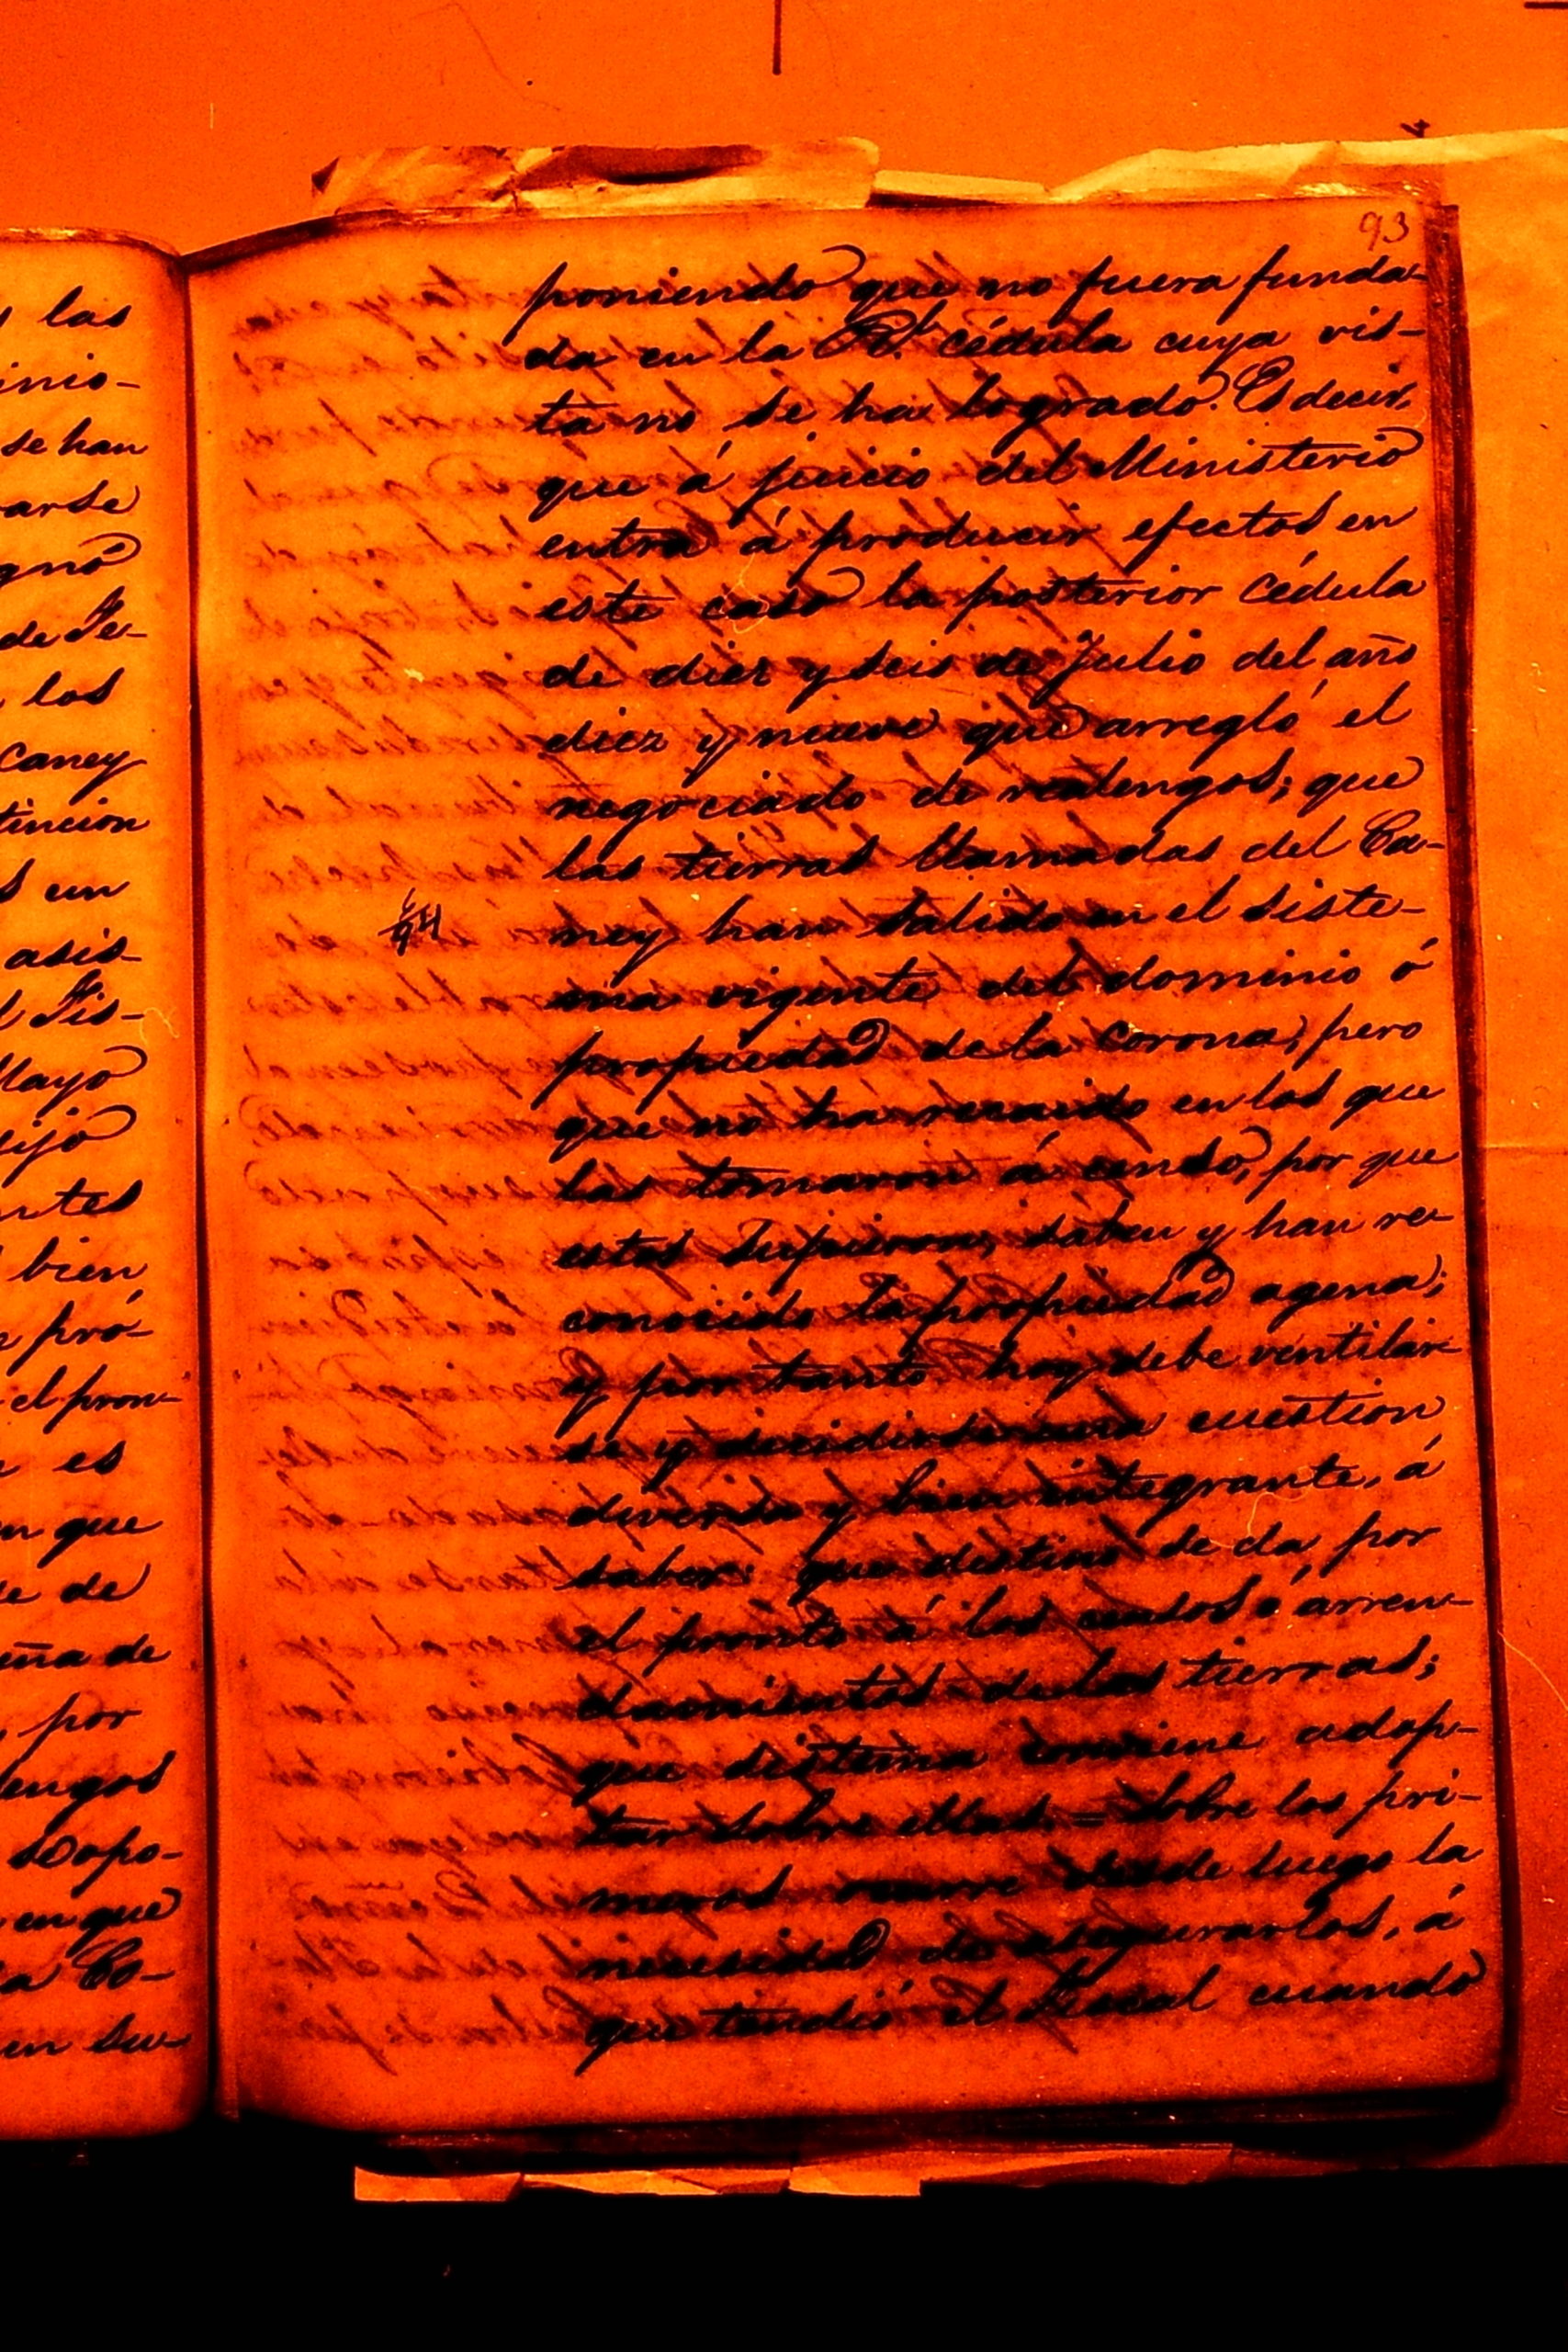 s las
inio-
se han
arse
gnó
de Fe-
los
Caney
tincion
s un
asis-
l Fis-
Mayo
dijo
ntes
bien
pró-
el pron-
es
en que
se de
eña de
por
lengos
sopo-
en que
la Co-
en su
93
poniendo que no fuera funda-
da en la Rl. cédula cuya vis-
ta no se ha logrado. Es decir,
que á juicio del Ministerio
entra á producir efectos en
este caso la posterior cédula
de diez y seis de Julio del año
diez y nueve que arregló el
negociado de realengos; que
las tierras llamadas del Ca-
ney han salido en el siste-
ma vigente del dominio ó
propiedad de la Corona, pero
que no ha recaido en los que
las tomaron á censo, por que
estos supieron, saben y han re-
conocido la propiedad agena;
y por tanto hoy debe ventilar-
se y decidirse una cuestion
diversa y bien integrante, á
saber: que destino se da, por
el pronto á los censos ó arren-
damientos de las tierras;
que sistema conviene adop-
tar sobre ellas. = Sobre los pri-
meros ocurre desde luego la
necesidad de asegurarlos, á
que tendió el Fiscal cuando